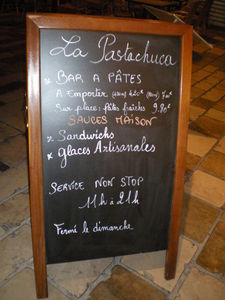 La Pastachuca
x BAR A PÂTES
A Emporter 4.20€ 7.00€
Sur place: pâtes fraîches 9.80€
SAUCES MAISON
x Sandwichs
x Glaces Artisanales
SERVICE NON STOP
11h à 21h
Fermé le dimanche